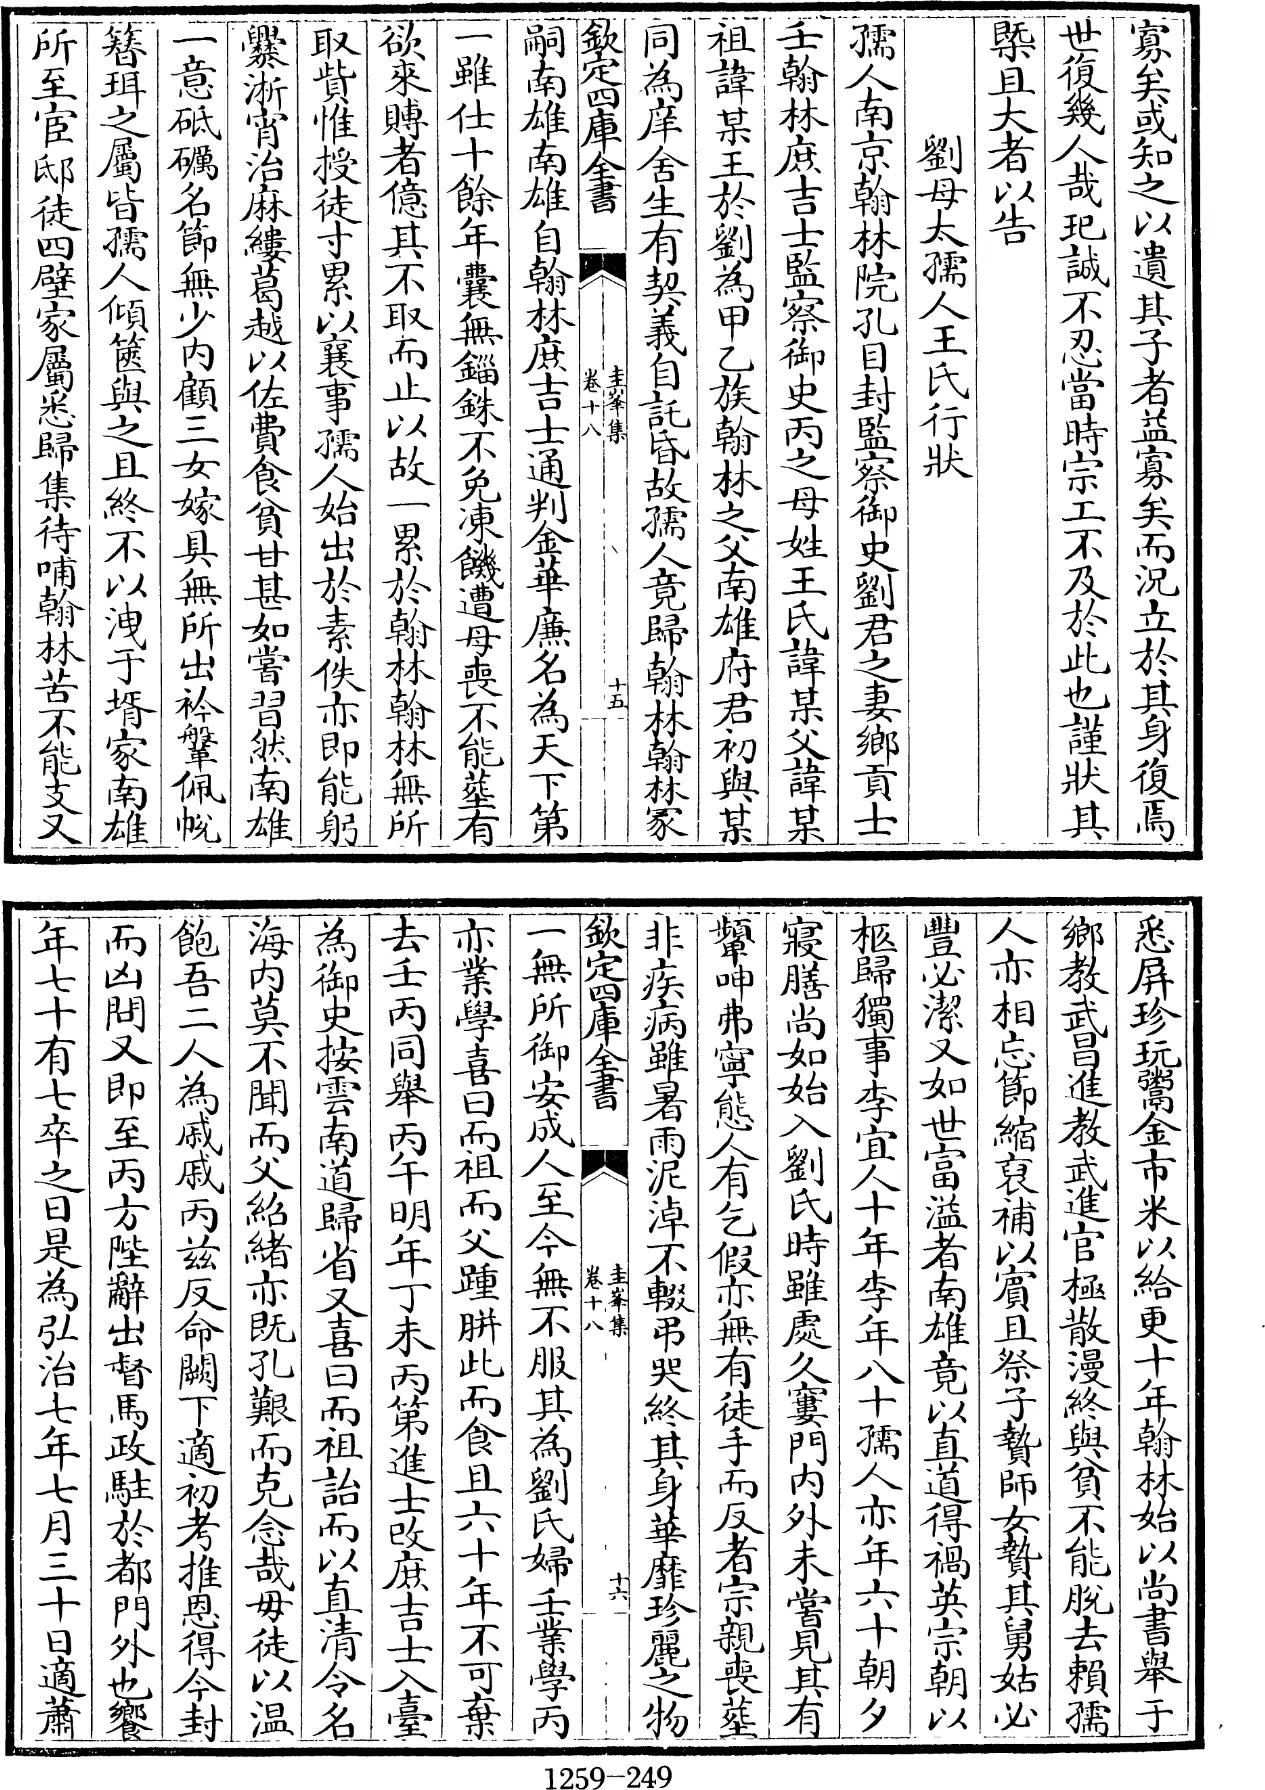 寡矣或知之以遺其子者益寡矣而況立於其身復焉
世復幾人哉玘誠不忍當時宗工不及於此也謹狀其
槩且大者以告
劉母太孺人王氏行狀
孺人南京翰林院孔目封監察御史劉君之妻鄉貢士
壬翰林庶吉士監察御史丙之母姓王氏諱某父諱某
祖諱某王於劉為甲乙族翰林之父南雄府君初與某
同為庠舍生有契義自託昏故孺人竟歸翰林翰林冢
欽定四庫全書
圭峯集
卷十八
十五
嗣南雄南雄自翰林庶吉士通判金華廉名為天下第
一雖仕十餘年囊無錙銖不免凍饑遭母喪不能塟有
欲來賻者億其不取而止以故一累於翰林翰林無所
取貲惟授徒寸累以襄事孺人始出於素佚亦即能躬
爨淅宵治麻縷葛越以佐費食貧甘甚如嘗習然南雄
一意砥礪名節無少內顧三女嫁具無所出衿鞶佩帨
簪珥之屬皆孺人傾篋與之且終不以洩于壻家南雄
所至宦邸徒四壁家屬悉歸集待哺翰林苦不能支又
悉屏珍玩鬻金市米以給更十年翰林始以尚書舉于
鄉教武昌進教武進官極散漫終與貧不能脫去賴孺
人亦相忘節縮裒補以賓且祭子贄師女贄其舅姑必
豐必潔又如世富溢者南雄竟以直道得禍英宗朝以
柩歸獨事李宜人十年李年八十孺人亦年六十朝夕
寢膳尚如始入劉氏時雖處久窶門內外未嘗見其有
顰呻弗寧態人有乞假亦無有徒手而反者宗親喪塟
非疾病雖暑雨泥淖不輟弔哭終其身華靡珍麗之物
欽定四庫全書
圭峯集
卷十八
十六
一無所御安成人至今無不服其為劉氏婦壬業學丙
亦業學喜曰而祖而父踵胼此而食且六十年不可棄
去壬丙同舉丙午明年丁未丙第進士改庶吉士入臺
為御史按雲南道歸省又喜曰而祖詒而以直清令名
海內莫不聞而父紹緒亦既孔艱而克念哉毋徒以溫
飽吾二人為戚戚丙茲反命闕下適初考推恩得今封
而凶問又即至丙方陛辭出督馬政駐於都門外也饗
年七十有七卒之日是為弘治七年七月三十日適蕭
1259-249